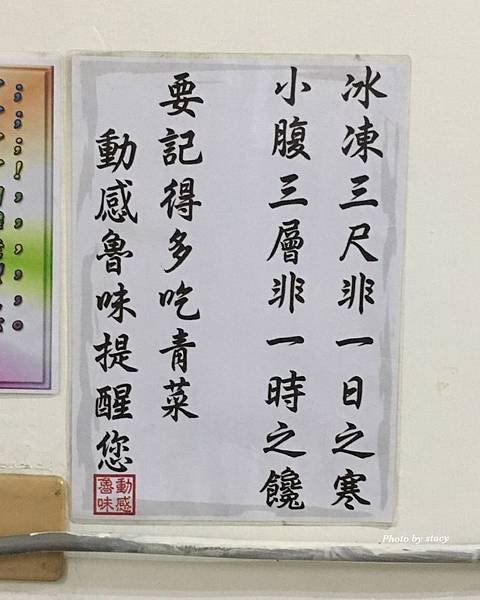 冰凍三尺非一日之寒
小腹三層非一時之饞
要記得多吃青菜
動感魯味提醒您
動感
魯味
Photo by stacy